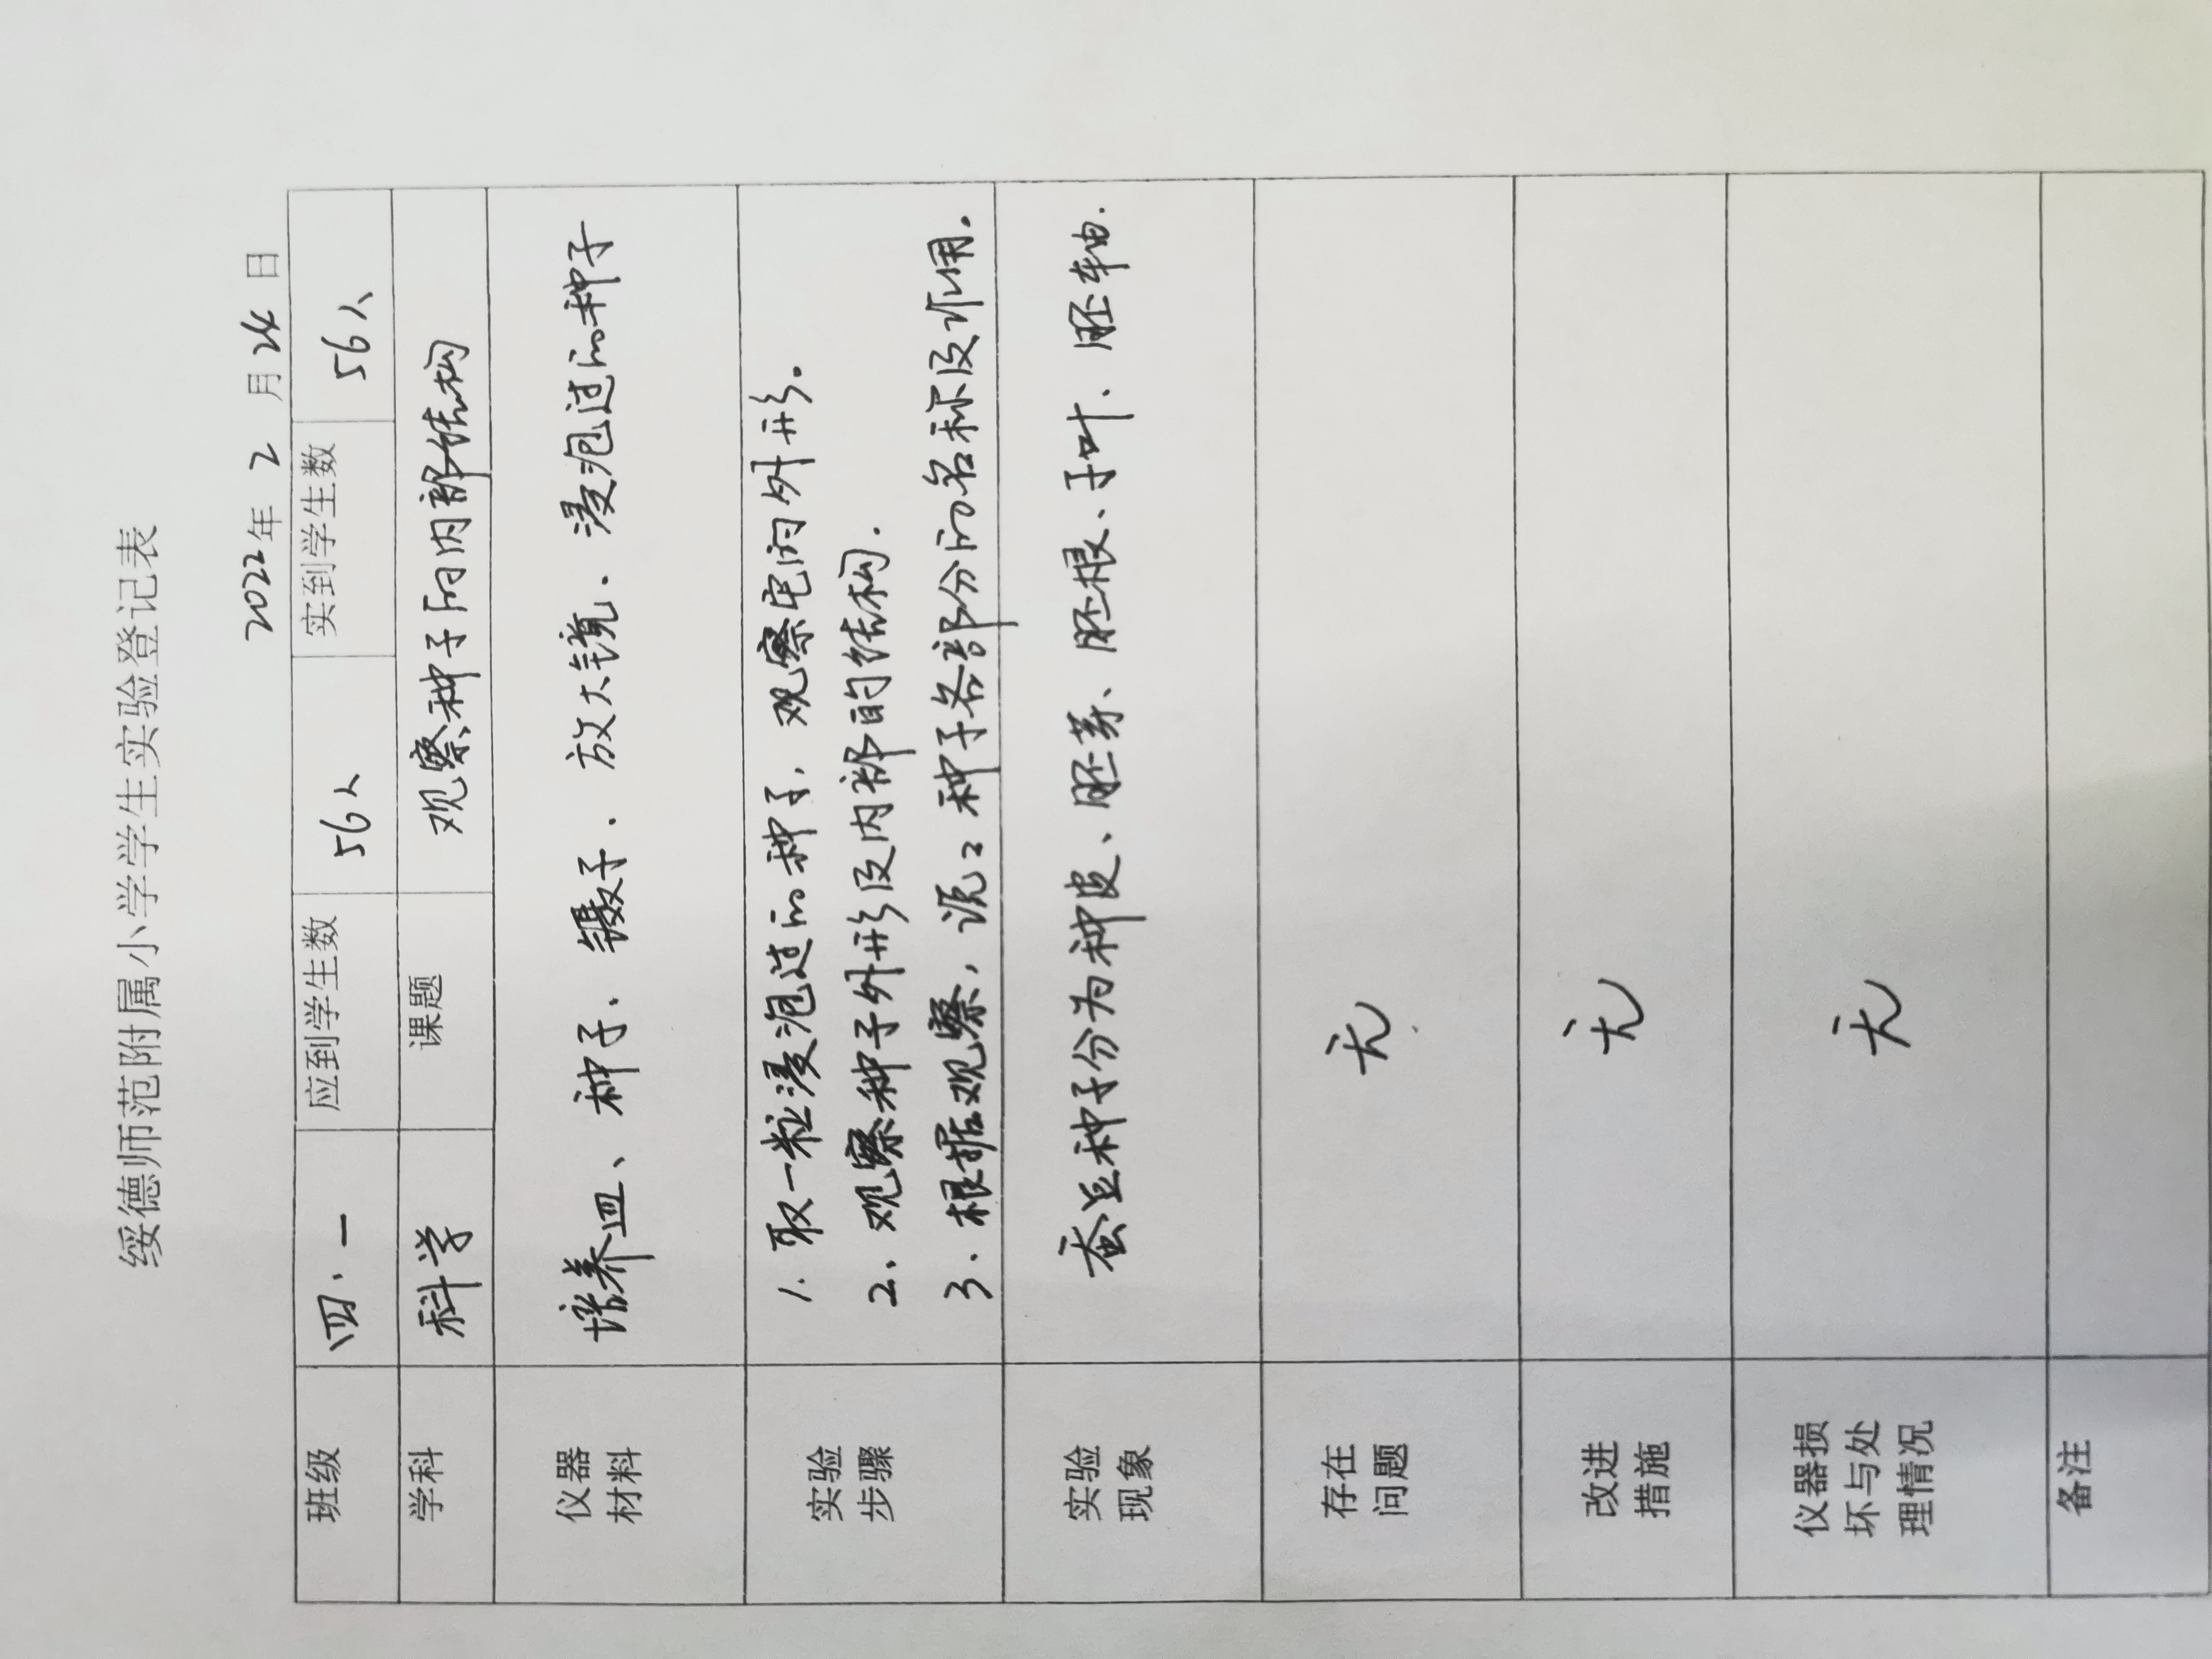 绥德师范附属小学学生实验登记表
2022年 2 月 24 日
班级 四.一 应到学生数 56人 实到学生数 56人
学科 科学 课题 观察种子的内部结构
仪器
材料
培养皿、种子、镊子、放大镜、浸泡过的种子
实验
步骤
1. 取一粒浸泡过的种子，观察它的外形。
2. 观察种子外形及内部的结构.
3. 根据观察，说々种子各部分的名称及作用.
实验
现象
蚕豆种子分为种皮、胚芽、胚根、子叶、胚轴.
存在
问题
无
改进
措施
无
仪器损
坏与处
理情况
无
备注